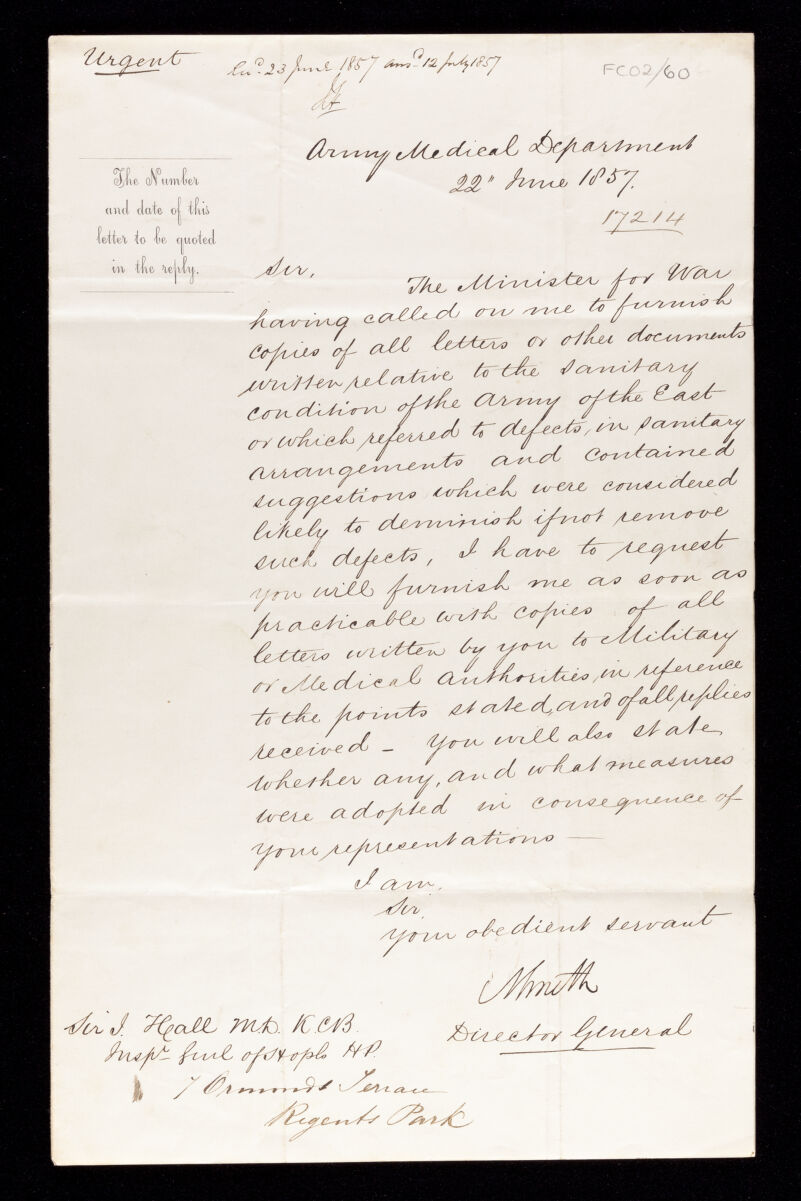 Urgent
recd. 23 June 1857 ansd. 12 July 1857
FC02/60
Army Medical Department
22" June 1857.
17214
The Number
and date of this
letter to be quoted
in the reply.
Sir,
The Minister for War
having called on me to furnish
copies of all letters or other documents
written relative to the sanitary
condition of the Army of the East
or which referred to defects, in sanitary
arrangements and contained
suggestions which were considered
likely to deminish if not remove
such defects, I have to request
you will furnish me as soon as
practicable with copies of all
letters written by you to Military
or Medical authorities, in reference
to the points stated, and of all replies
received – You will also state
whether any, and what measures
were adopted in consequence of
your representations —
I am,
Sir,
your obedient servant
Director General
Sir J. Hall MD. K.C.B.
Inspr. Genl of Hospls HP.
7 Ormonde Terrace
Regents Park